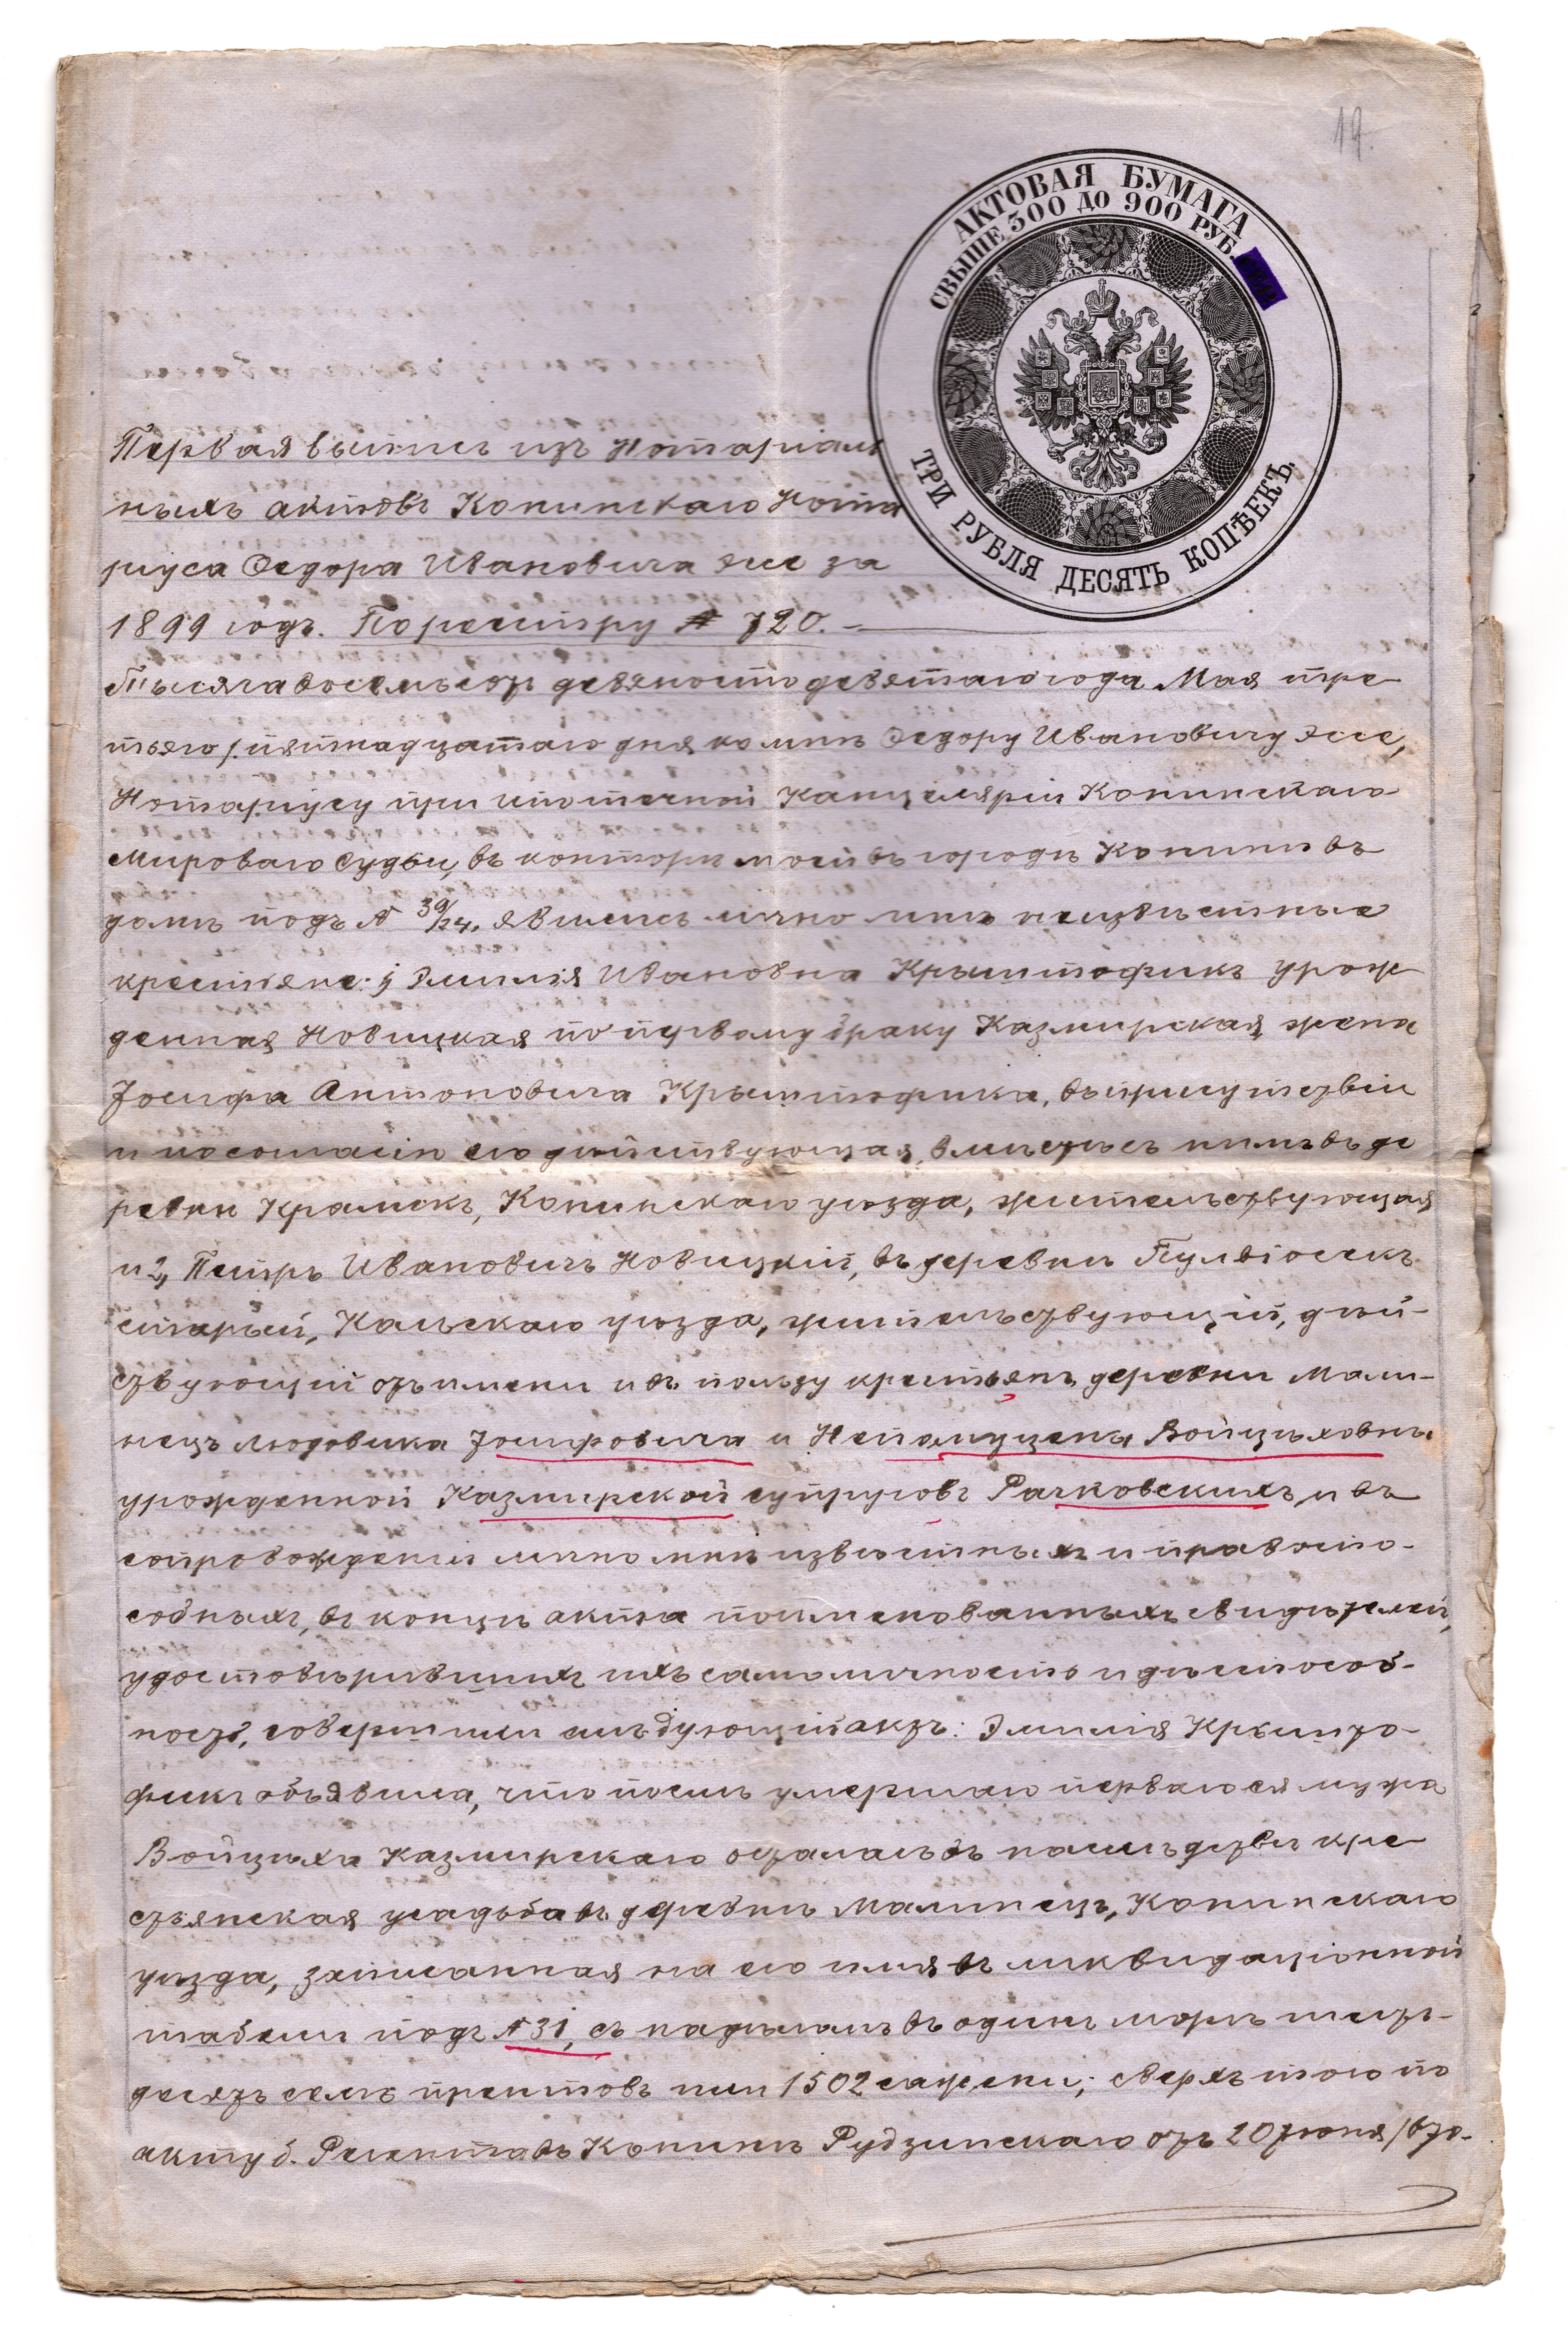 19.
АКТОВАЯ БУМАГА
СВЫШЕ 300 ДО 900 РУБ.
ТРИ РУБЛЯ ДЕСЯТЬ КОПѢЕКЪ.
Первая выпись изъ Нотаріаль
ныхъ актовъ Конинскаго Нота
ріуса Федора Ивановича Эссе за
1899 годъ. По реестру № 720. –
Тысяча восемьсотъ девяносто девятаго года Мая тре-
тьяго /:пятнадцатаго дня ко мнѣ Федору Ивановичу Эссе,
Нотаріусу при ипотечной Канцеляріи Конинскаго
Мироваго Судьи, въ конторѣ моей въ городѣ Конинѣ въ
домѣ подъ № 39/24. явились лично мнѣ неизвѣстные
крестьяне: 1, Эмилія Ивановна Крыштофикъ урож
денная Новицкая по первому браку Казмирская, жена
Іосифа Антоновича Крыштофика, въ присутствіи
и по согласію его дѣйствующая, вмѣстѣ съ нимъ въ де
ревнѣ Крамскъ, Конинскаго уѣзда, жительствующая
и 2, Петръ Ивановичъ Новицкій, въ деревнѣ
старый, Кольскаго уѣзда, жительствующій, дѣй-
ствующій отъ имени и въ пользу крестьянъ деревни Мали-
нецъ Людовика Іосифовича и Непомуцены Войцѣховны
урожденной Казмирской супруговъ Рачковскихъ, и въ
сопровожденіи лично мнѣ извѣстныхъ и правоспо-
собныхъ, въ концѣ акта поименованныхъ свидѣтелей,
удостовѣрившихъ ихъ самоличность и дѣеспособ-
ность, совершили слѣдующій актъ: Эмилія Крышто-
фикъ объявила, что послѣ умершаго перваго ея мужа
Войцѣха Казмирскаго осталась въ наслѣдствѣ кре-
стьянская усадьба въ деревнѣ Малинецъ, Конинскаго
уѣзда, записанная на его имя въ ликвидаціонной
табели подъ № 31, съ надѣломъ въ одинъ моргъ шесть-
десятъ семь прентовъ или 1502 сажени; сверхъ того по
акту б. Регента въ Конинѣ Рудзинскаго отъ 20 Іюня /вто-